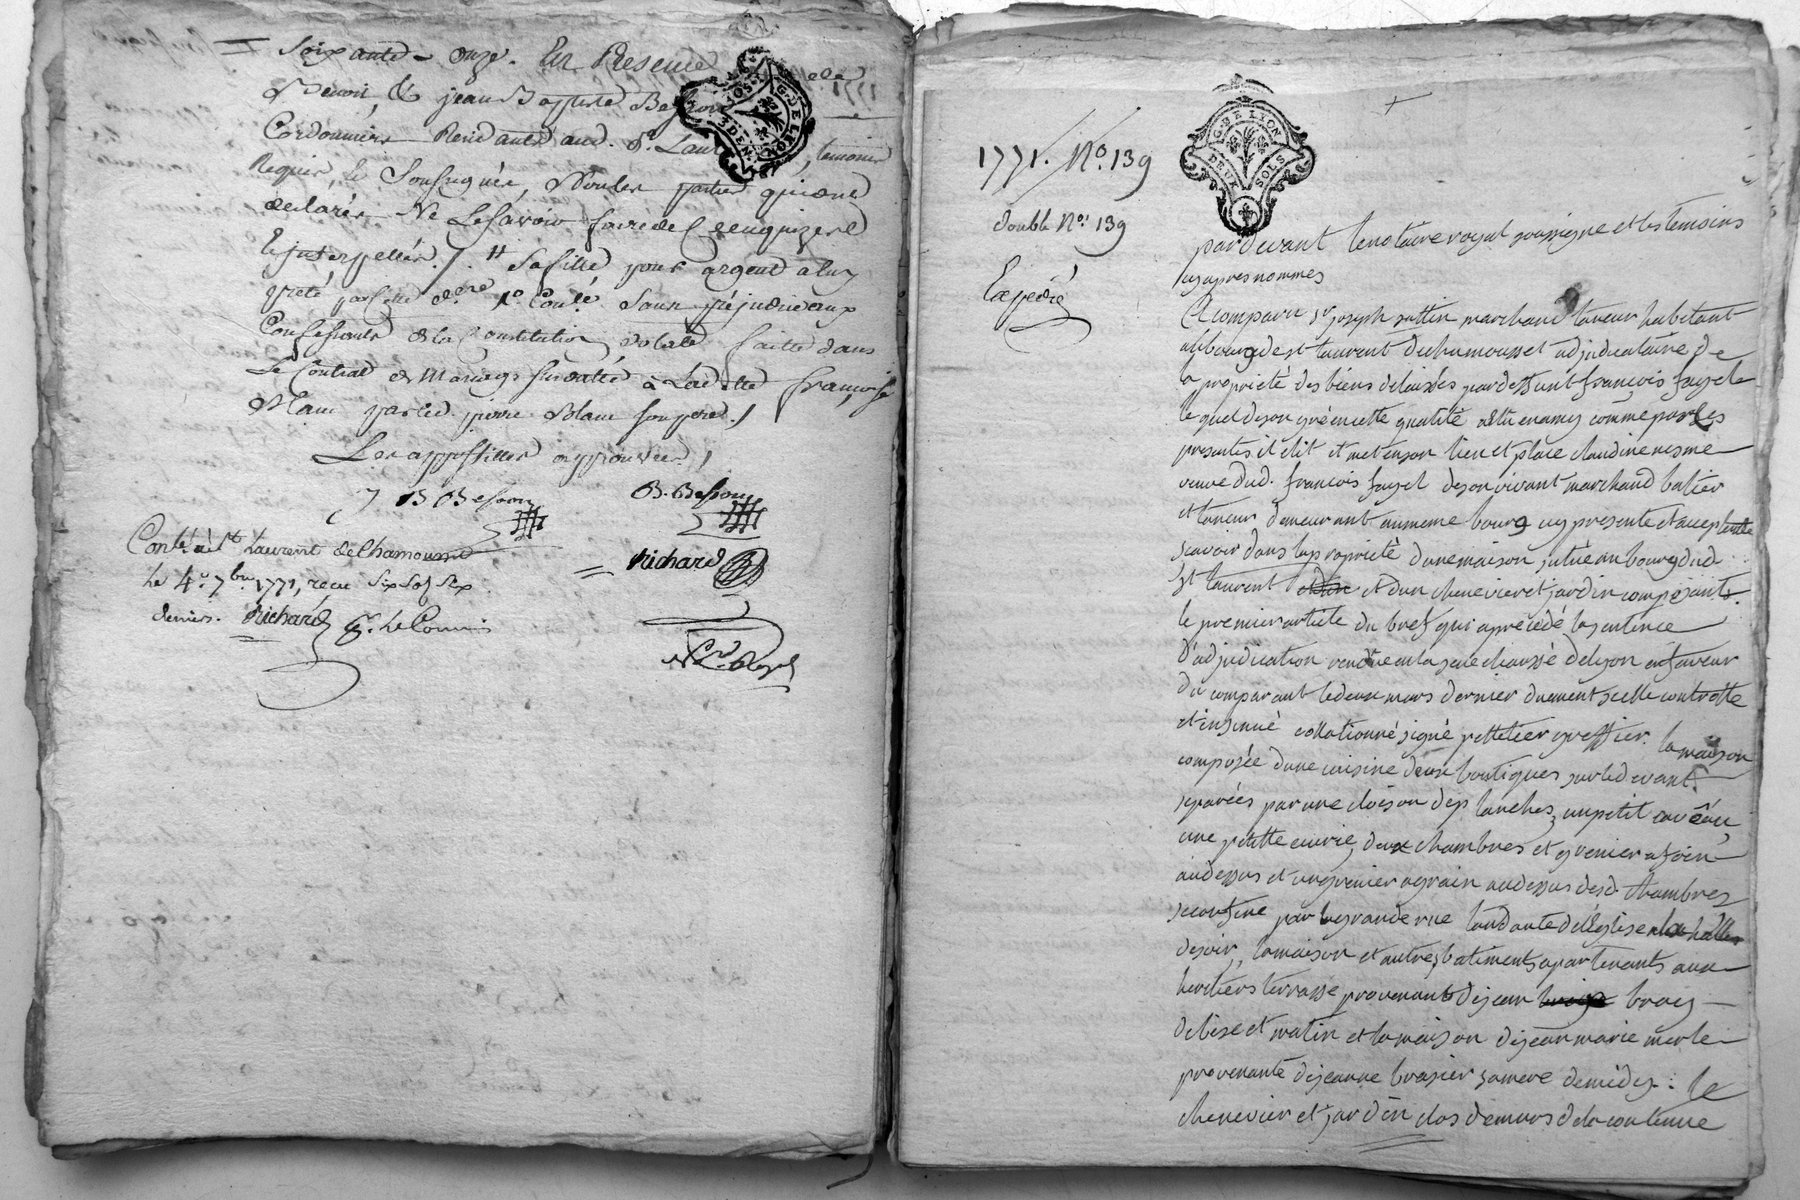 Soixante-onze. En Presence
Benoit, & jean Baptiste Besson
Cordonniers Residants aud. St. Laur temoins
Requis, le Soussignés, Nonles parties qui ont
declarés Ne Lesavoir faire de ce enquis et
Interpellés. /. # Sa fille pour argent a luy
preté par
Confessants de la Constitution dotale faitte dans
Le Contrat de Mariage surdatté à Ladette françoise
Blanc par led. pierre Blanc son pere. /
Les appostilles approuvées /
J B Besson
B. Besson
Richard
Conlé à St Laurent de Chamousset
le 4e. 7bre 1771, recu Six Sols Six
deniers. Richard pr. le Commis
G. DE LYON
3 DEN.
1771. No. 139
double No. 139
Expedié
G. DE LYON
DEUX SOLS
pardevant le notaire royal soussigne et les temoins
cy apres nommes
A comparu sr joseph sottin marchand taneur habitant
au bourg de st laurent de chamousset adjudicataire de
la proprieté des biens delaisés par deffunt françois fayel
le quel de son gré en cette qualité a elu en amy comme par les
presentes il elit et met en son lieu et place claudine nesme
veuve dud. francois fayel de son vivant marchand batier
et taneur demeurant au meme bourg cy presente et acceptante
scavoir dans la proprieté d'une maison, située au bourg dud.
St laurent et d'un chenevier et jardin composants
le premier article du bref qui a precédé la sentence
d'adjudication rendue en la senechaussé de lyon en faveur
du comparant le deux mars dernier duement scelle controlle
et insinué collationné signé pelletier greffier. la maison
composée d'une cuisine deux boutiques sur le devant
separées par une cloison de planches, un petit caveau,
une petitte ecurie, deux chambres et grenier a foin
au dessus et un grenier a grain au dessus desd. chambres
se confine par la grande rue tandante de l'Eglise a la halle
de soir, la maison et autres batiments apartenants aux
heritiers terrasse provenants de jean broüy
de bise et matin et la maison de jean marie merle
provenante de jeanne brasier sa mere de midy : le
chenevier et jardin clos de murs de la contenue